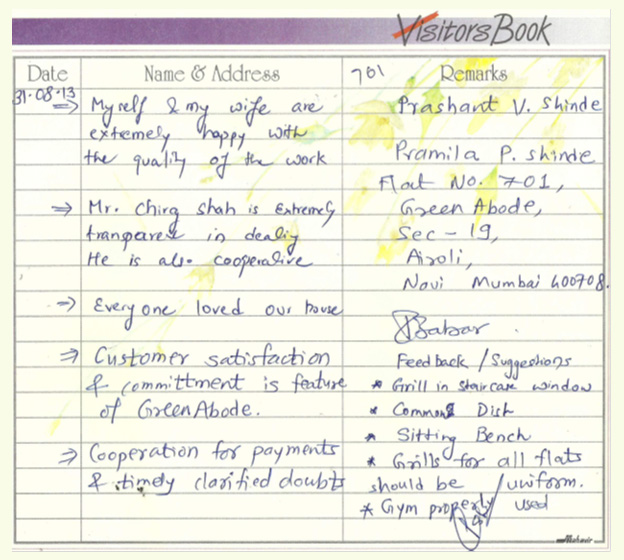 Visitors Book
Date Name & Address 701 Remarks
31-08-13
⇒ Myself & my wife are
extremely happy with
the quality of the work
⇒ Mr. Chirg Shah is Extremely
tranparest in dealig
He is also cooperative
⇒ Everyone loved our house
⇒ Customer satisfaction
& committment is feature
of GreenAbode.
⇒ Cooperation for payments
& timely clarified doubts
Prashant V. Shinde
Pramila P. Shinde
Flat No. 701,
Green Abode,
Sec - 19,
Airoli,
Navi Mumbai 400708.
Feedback / Suggestions
* Grill in staircase window
* Common Dish
* Sitting Bench
* Grills for all flats
should be uniform.
* Gym properly used